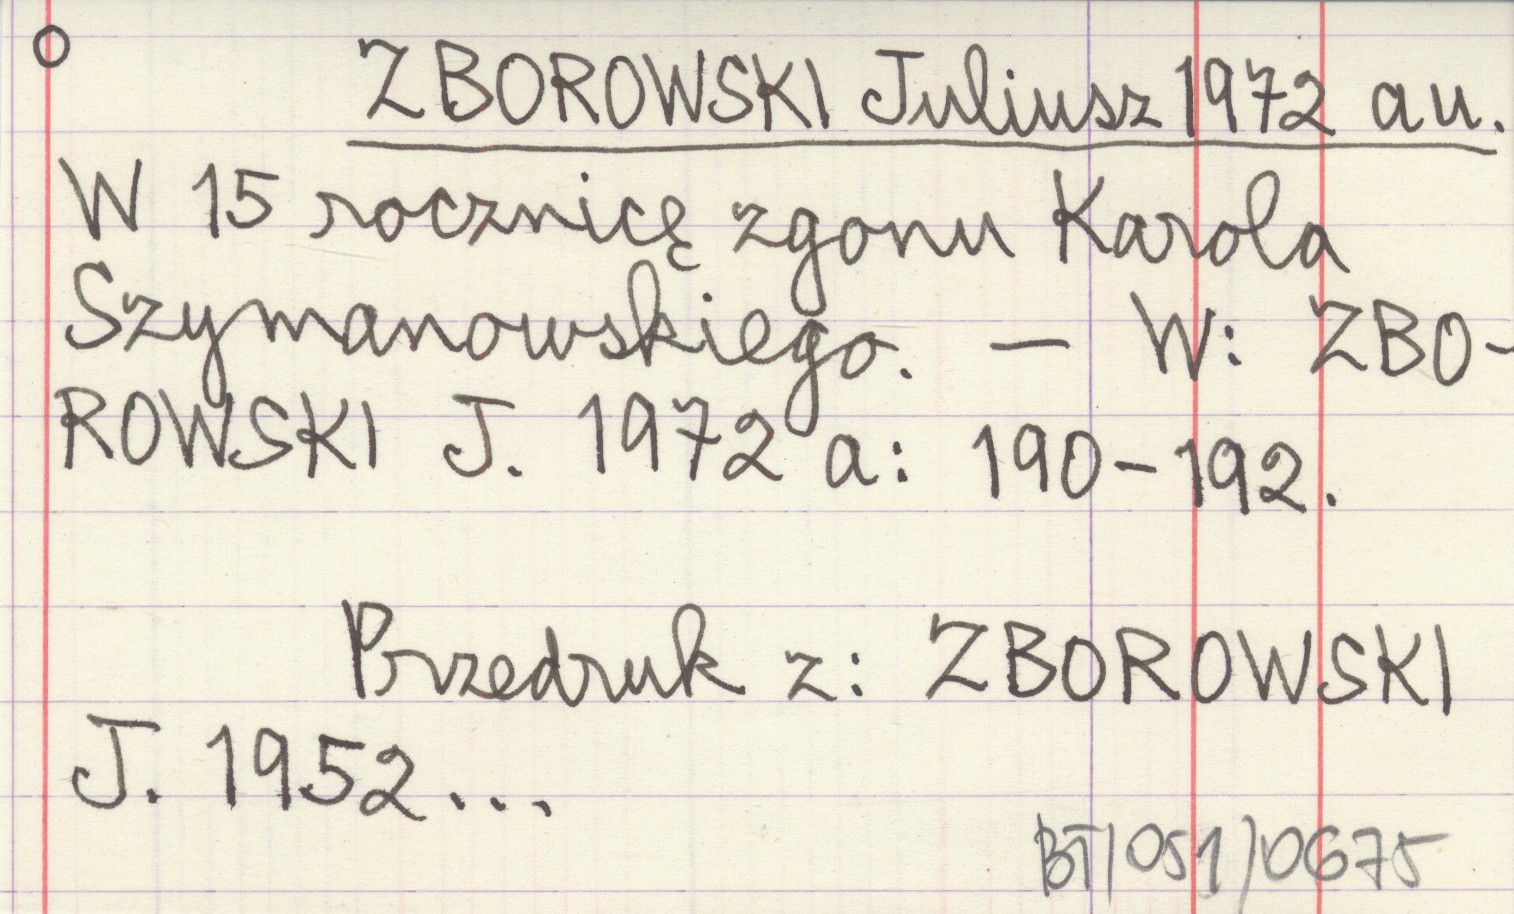 O ZBOROWSKI Juliusz 1972 au.
W 15 rocznicę zgonu Karola
Szymanowskiego. — W: ZBO-
ROWSKI J. 1972 a: 190-192.
Przedruk z: ZBOROWSKI
J. 1952...
BT/051/0675